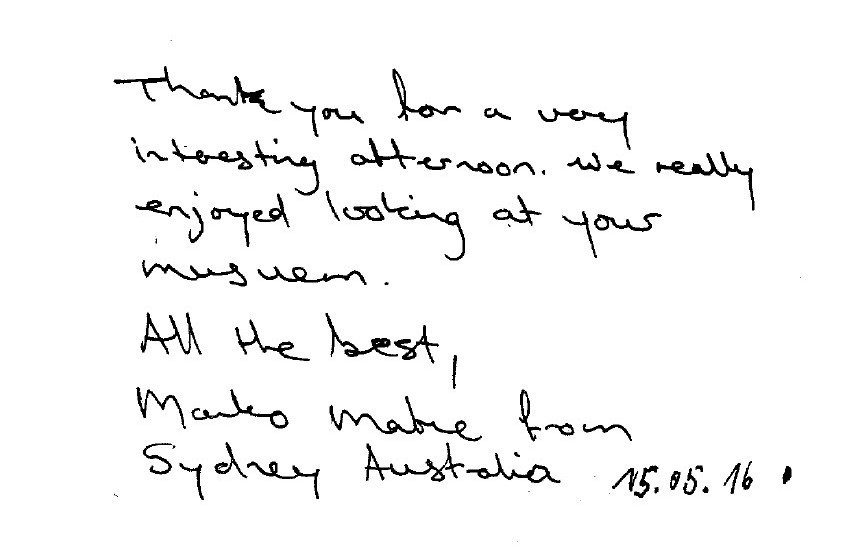 Thank you for a very
interesting afternoon. We really
enjoyed looking at your
musuem.
All the best,
Marko from
Sydney Australia 15.05.16